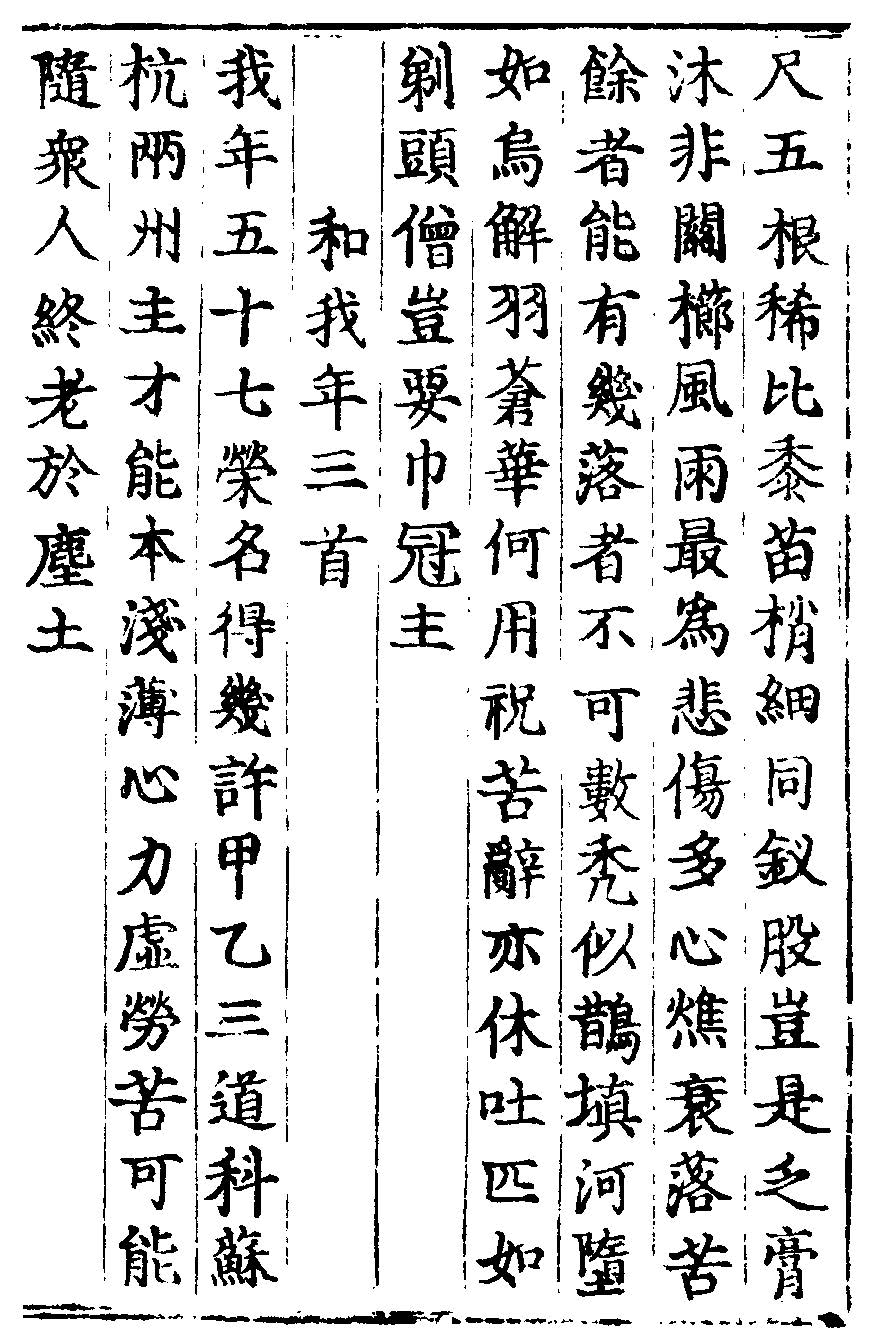 尺五根稀比黍苗梢細同釵股豈是乏膏
沐非關櫛風雨最爲悲傷多心燋衰落苦
餘者能有幾落者不可數禿似鵲填河墮
如烏解羽蒼華何用祝苦辭亦休吐匹如
剃頭僧豈要巾冠主
和我年三首
我年五十七榮名得幾許甲乙三道科蘇
杭兩州主才能本淺薄心力虛勞苦可能
隨衆人終老於塵土